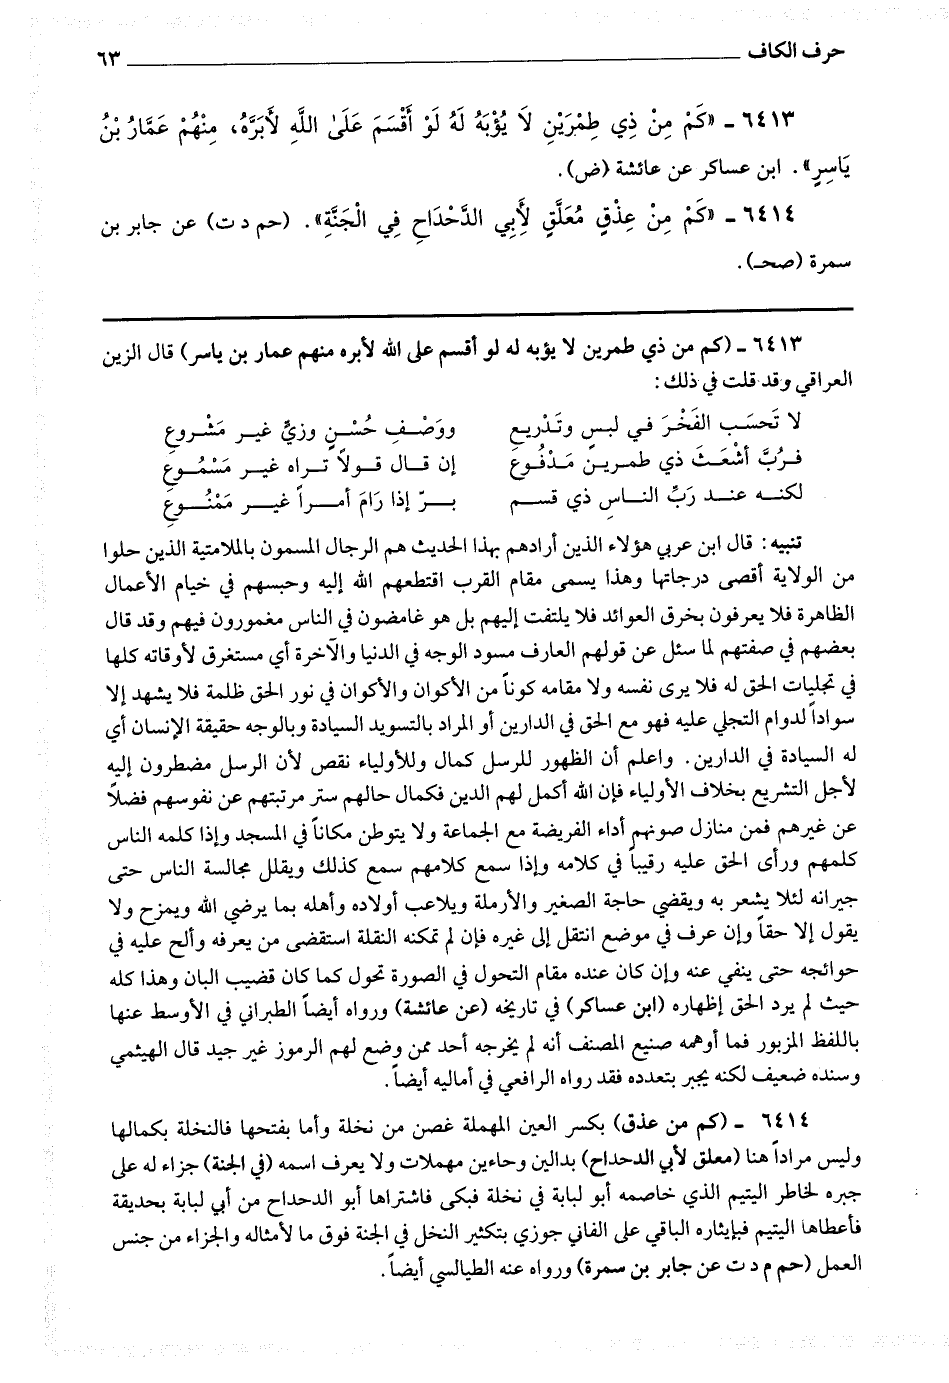 حرف الكاف ٦٣
٦٤١٣ ـ «كَمْ مِنْ ذِي طِمْرَيْنِ لَا يُؤْبَهُ لَهُ لَوْ أَقْسَمَ عَلَىٰ اللَّهِ لَأَبَرَّهُ، مِنْهُمْ عَمَّارُ بْنُ
يَاسِرٍ». ابن عساكر عن عائشة (ض).
٦٤١٤ ـ «كَمْ مِنْ عِذْقٍ مُعَلَّقٍ لِأَبِي الدَّحْدَاحِ فِي الْجَنَّةِ». (حم د ت) عن جابر بن
سمرة (صحـ).
٦٤١٣ ـ (كم من ذي طمرين لا يؤبه له لو أقسم على الله لأبره منهم عمار بن ياسر) قال الزين
العراقي وقد قلت في ذلك:
لا تَحسَب الفَخْرَ في لبسٍ وتَدْريعِ ووَصْفِ حُسْنٍ وزيٍّ غير مَشْروعِ
فرُبَّ أشْعَثَ ذي طمرين مَدْفُوعَ إن قال قولاً تراه غير مَسْمُوعِ
لكنه عند رَبِّ الناسِ ذي قسم برّ إذا رَامَ أمراً غير مَمْنُوعَ
تنبيه: قال ابن عربي هؤلاء الذين أرادهم بهذا الحديث هم الرجال المسمون بالملامتية الذين حلوا
من الولاية أقصى درجاتها وهذا يسمى مقام القرب اقتطعهم الله إليه وحبسهم في خيام الأعمال
الظاهرة فلا يعرفون بخرق العوائد فلا يلتفت إليهم بل هو غامضون في الناس مغمورون فيهم وقد قال
بعضهم في صفتهم لما سئل عن قولهم العارف مسود الوجه في الدنيا والآخرة أي مستغرق لأوقاته كلها
في تجليات الحق له فلا يرى نفسه ولا مقامه كوناً من الأكوان والأكوان في نور الحق ظلمة فلا يشهد إلا
سواداً لدوام التجلي عليه فهو مع الحق في الدارين أو المراد بالتسويد السيادة وبالوجه حقيقة الإنسان أي
له السيادة في الدارين. واعلم أن الظهور للرسل كمال وللأولياء نقص لأن الرسل مضطرون إليه
لأجل التشريع بخلاف الأولياء فإن الله أكمل لهم الدين فكمال حالهم ستر مرتبتهم عن نفوسهم فضلاً
عن غيرهم فمن منازل صونهم أداء الفريضة مع الجماعة ولا يتوطن مكاناً في المسجد وإذا كلمه الناس
كلمهم ورأى الحق عليه رقيباً في كلامه وإذا سمع كلامهم سمع كذلك ويقلل مجالسة الناس حتى
جيرانه لئلا يشعر به ويقضي حاجة الصغير والأرملة ويلاعب أولاده وأهله بما يرضي الله ويمزح ولا
يقول إلا حقاً وإن عرف في موضع انتقل إلى غيره فإن لم تمكنه النقلة استقضى من يعرفه وألح عليه في
حوائجه حتى ينفي عنه وإن كان عنده مقام التحول في الصورة تحول كما كان قضيب البان وهذا كله
حيث لم يرد الحق إظهاره (ابن عساكر) في تاريخه (عن عائشة) ورواه أيضاً الطبراني في الأوسط عنها
باللفظ المزبور فما أوهمه صنيع المصنف أنه لم يخرجه أحد ممن وضع لهم الرموز غير جيد قال الهيثمي
وسنده ضعيف لكنه يجبر بتعدده فقد رواه الرافعي في أماليه أيضاً.
٦٤١٤ ـ (كم من عذق) بكسر العين المهملة غصن من نخلة وأما بفتحها فالنخلة بكمالها
وليس مراداً هنا (معلق لأبي الدحداح) بدالين وحاءين مهملات ولا يعرف اسمه (في الجنة) جزاء له على
جبره لخاطر اليتيم الذي خاصمه أبو لبابة في نخلة فبكى فاشتراها أبو الدحداح من أبي لبابة بحديقة
فأعطاها اليتيم فبإيثاره الباقي على الفاني جوزي بتكثير النخل في الجنة فوق ما لأمثاله والجزاء من جنس
العمل (حم م د ت عن جابر بن سمرة) ورواه عنه الطيالسي أيضاً.